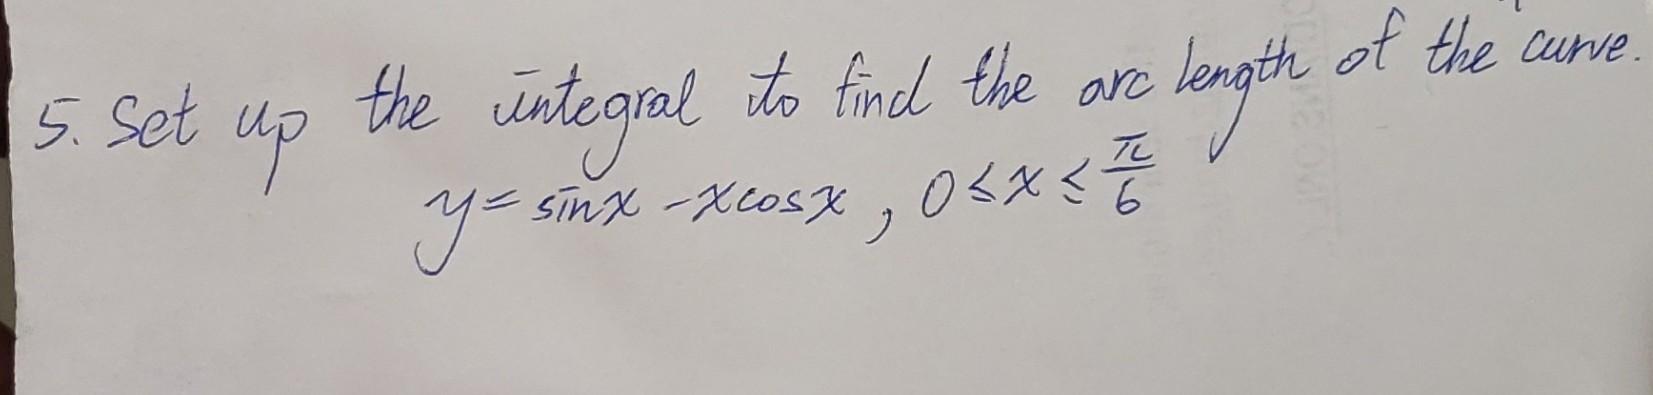 5. Set up the integral to find the arc length of the curve.
y = sinx - xcosx , 0 ≤ x ≤ π/6